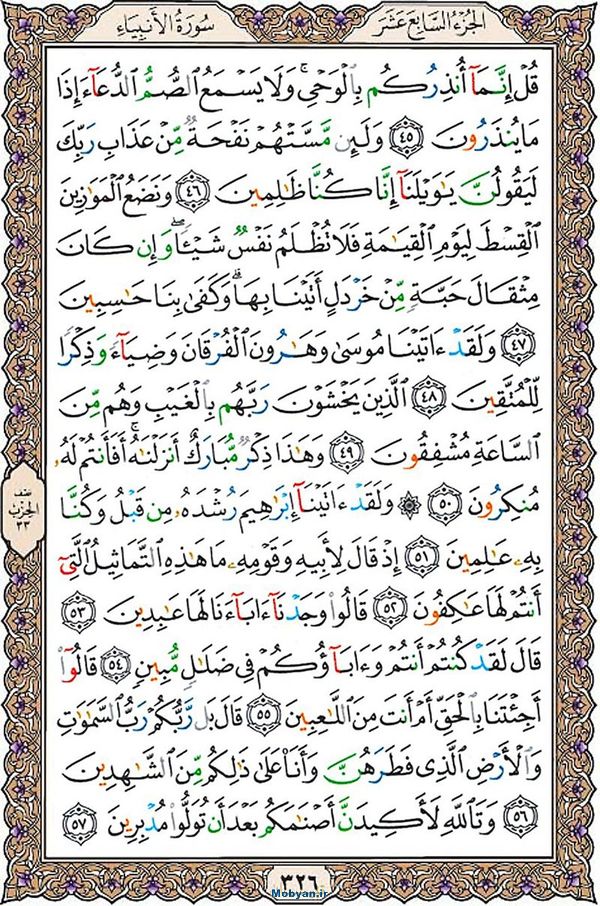 الجزء السابع عشر
سورة الأنبياء
قُلْ إِنَّمَآ أُنذِرُكُم بِٱلْوَحْىِ ۚ وَلَا يَسْمَعُ ٱلصُّمُّ ٱلدُّعَآءَ إِذَا
مَا يُنذَرُونَ ٤٥ وَلَئِن مَّسَّتْهُمْ نَفْحَةٌ مِّنْ عَذَابِ رَبِّكَ
لَيَقُولُنَّ يَـٰوَيْلَنَآ إِنَّا كُنَّا ظَـٰلِمِينَ ٤٦ وَنَضَعُ ٱلْمَوَٰزِينَ
ٱلْقِسْطَ لِيَوْمِ ٱلْقِيَـٰمَةِ فَلَا تُظْلَمُ نَفْسٌ شَيْـًٔا ۖ وَإِن كَانَ
مِثْقَالَ حَبَّةٍ مِّنْ خَرْدَلٍ أَتَيْنَا بِهَا ۗ وَكَفَىٰ بِنَا حَـٰسِبِينَ
٤٧ وَلَقَدْ ءَاتَيْنَا مُوسَىٰ وَهَـٰرُونَ ٱلْفُرْقَانَ وَضِيَآءً وَذِكْرًا
لِّلْمُتَّقِينَ ٤٨ ٱلَّذِينَ يَخْشَوْنَ رَبَّهُم بِٱلْغَيْبِ وَهُم مِّنَ
ٱلسَّاعَةِ مُشْفِقُونَ ٤٩ وَهَـٰذَا ذِكْرٌ مُّبَارَكٌ أَنزَلْنَـٰهُ ۚ أَفَأَنتُمْ لَهُۥ
مُنكِرُونَ ٥٠ ۞ وَلَقَدْ ءَاتَيْنَآ إِبْرَٰهِيمَ رُشْدَهُۥ مِن قَبْلُ وَكُنَّا
بِهِۦ عَـٰلِمِينَ ٥١ إِذْ قَالَ لِأَبِيهِ وَقَوْمِهِۦ مَا هَـٰذِهِ ٱلتَّمَاثِيلُ ٱلَّتِىٓ
أَنتُمْ لَهَا عَـٰكِفُونَ ٥٢ قَالُوا۟ وَجَدْنَآ ءَابَآءَنَا لَهَا عَـٰبِدِينَ ٥٣
قَالَ لَقَدْ كُنتُمْ أَنتُمْ وَءَابَآؤُكُمْ فِى ضَلَـٰلٍ مُّبِينٍ ٥٤ قَالُوٓا۟
أَجِئْتَنَا بِٱلْحَقِّ أَمْ أَنتَ مِنَ ٱللَّـٰعِبِينَ ٥٥ قَالَ بَل رَّبُّكُمْ رَبُّ ٱلسَّمَـٰوَٰتِ
وَٱلْأَرْضِ ٱلَّذِى فَطَرَهُنَّ وَأَنَا۠ عَلَىٰ ذَٰلِكُم مِّنَ ٱلشَّـٰهِدِينَ
٥٦ وَتَٱللَّهِ لَأَكِيدَنَّ أَصْنَـٰمَكُم بَعْدَ أَن تُوَلُّوا۟ مُدْبِرِينَ ٥٧
نصف
الحزب
٣٣
٣٢٦
Mobyan.ir